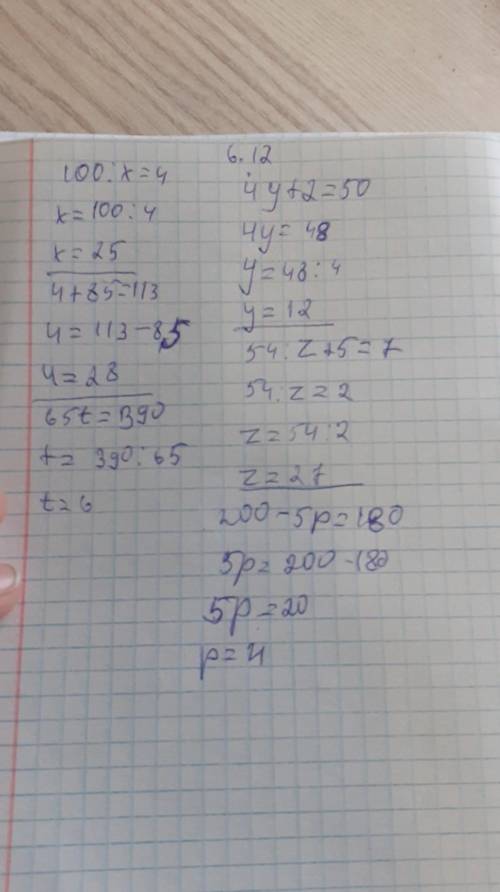 100:x=4
x=100:4
x=25
4+85=113
4=113-85
4=28
65t=390
t=390:65
t=6
6.12
4y+2=50
4y=48
y=48:4
y=12
54:z+5=7
54:z=2
z=54:2
z=27
200-5p=180
5p=200-180
5p=20
p=4